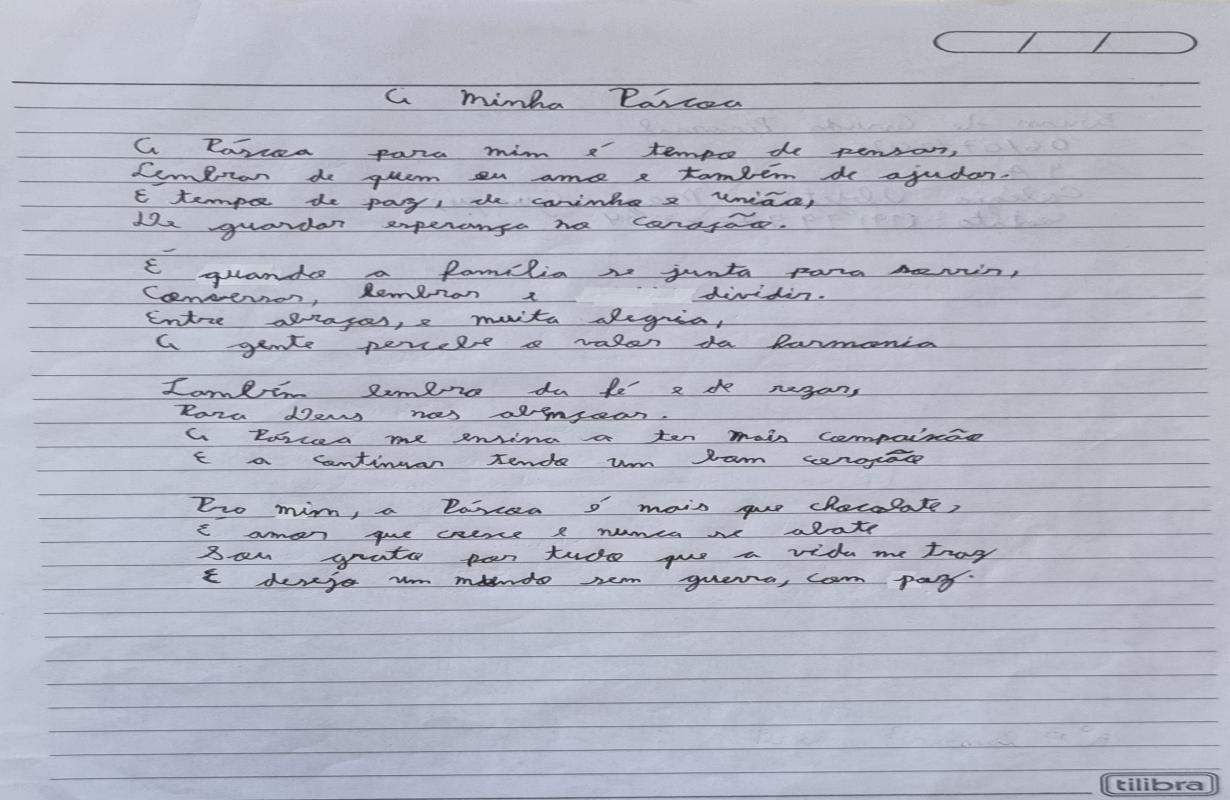 A Minha Páscoa
A Páscoa para mim é tempo de pensar,
Lembrar de quem eu amo e também de ajudar.
É tempo de paz, de carinho e união,
De guardar esperança no coração.
É quando a família se junta para sorrir,
Conversar, lembrar e dividir.
Entre abraços, e muita alegria,
A gente percebe o valor da harmonia
Também lembro da fé e de rezar,
Para Deus nos abençoar.
A Páscoa me ensina a ter mais compaixão
E a continuar tendo um bom coração
Pro mim, a Páscoa é mais que chocolate,
É amor que cresce e nunca se abate
Sou grato por tudo que a vida me traz
E desejo um mundo sem guerra, com paz.
tilibra